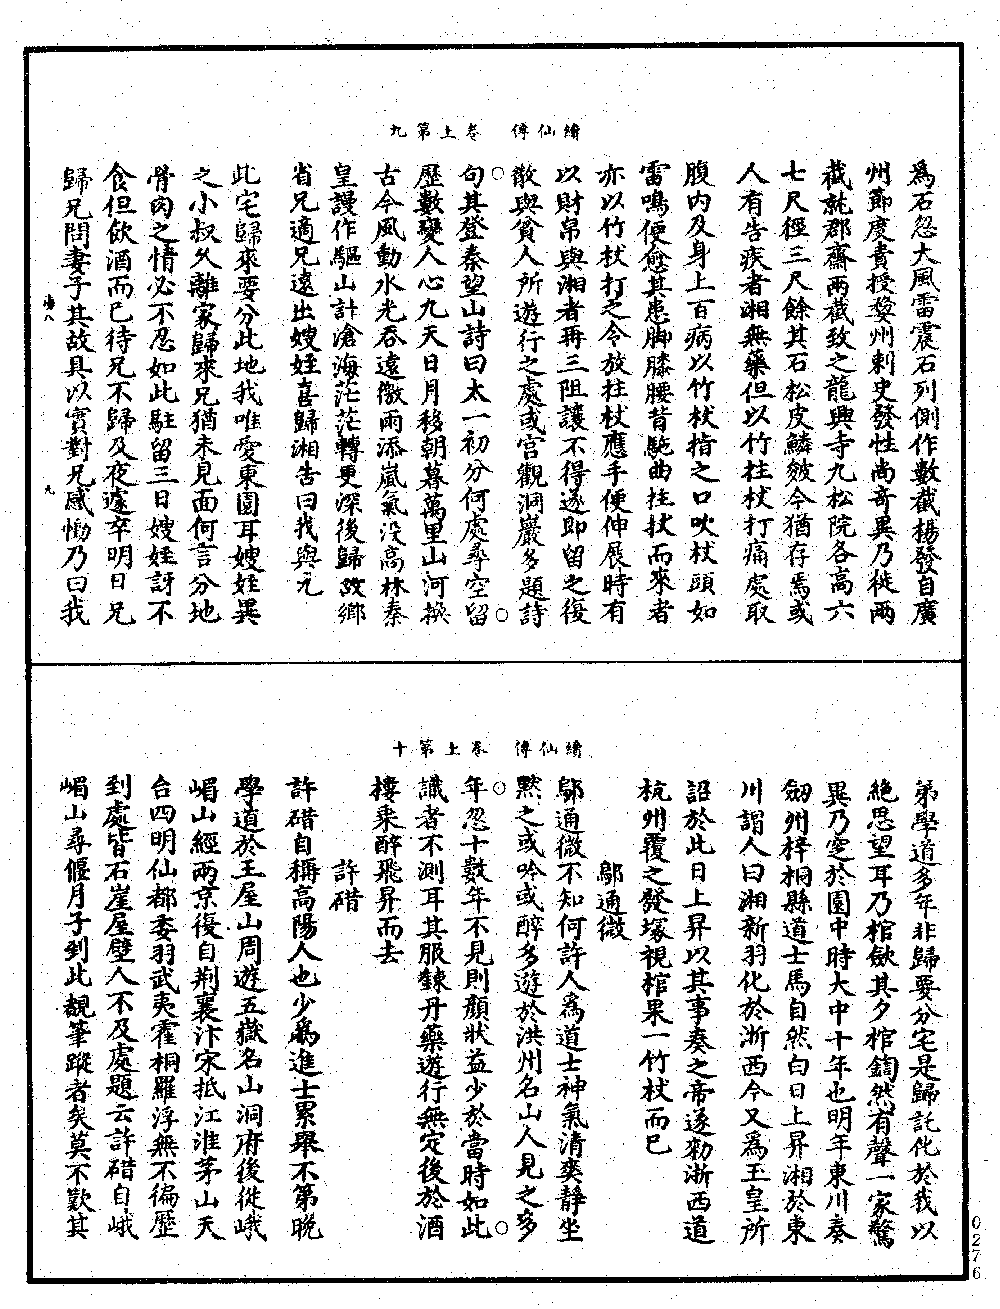 續仙傳 卷上第九
爲石忽大風雷震石列側作數截楊發自廣
州節度責授婺州刺史發性尚奇異乃徙兩
截就郡齋兩截致之龍興寺九松院各高六
七尺徑三尺餘其石松皮鱗皴今猶存焉或
人有告疾者湘無藥但以竹柱杖打痛處取
腹內及身上百病以竹杖指之口吹杖頭如
雷鳴便愈其患脚膝腰背駝曲柱杖而來者
亦以竹杖打之令放柱杖應手便伸展時有
以財帛與湘者再三阻讓不得遂即留之復
散與貧人所遊行之處或宮觀洞巖多題詩
句其登秦望山詩曰太一初分何處尋空留
歷數變人心九天日月移朝暮萬里山河換
古今風動水光吞遠徼雨添嵐氣没高林秦
皇謾作驅山計滄海茫茫轉更深後歸故鄉
省兄適兄遠出嫂姪喜歸湘告曰我與兄
此宅歸來要分此地我唯愛東園耳嫂姪異
之小叔久離家歸來兄猶未見面何言分地
骨肉之情必不忍如此駐留三日嫂姪訝不
食但飲酒而已待兄不歸及夜遽卒明日兄
歸兄問妻子其故具以實對兄感慟乃曰我
海八 九
續仙傳 卷上第十
弟學道多年非歸要分宅是歸託化於我以
絶思望耳乃棺斂其夕棺鎗然有聲一家驚
異乃窆於園中時大中十年也明年東川奏
劒州梓桐縣道士馬自然白日上昇湘於東
川謂人曰湘新羽化於浙西今又爲玉皇所
詔於此日上昇以其事奏之帝遂勑浙西道
杭州覆之發塚視棺果一竹杖而已
鄔通微
鄔通微不知何許人爲道士神氣清爽靜坐
黙之或吟或醉多遊於洪州名山人見之多
年忽十數年不見則顏狀益少於當時如此
識者不測耳其服鍊丹藥遊行無定後於酒
樓乘醉飛昇而去
許碏
許碏自稱高陽人也少爲進士累舉不第晚
學道於王屋山周遊五嶽名山洞府後從峨
嵋山經兩京復自荆襄汴宋抵江淮茅山天
台四明仙都委羽武夷霍桐羅浮無不徧歷
到處皆石崖屋壁人不及處題云許碏自峨
嵋山尋偃月子到此覩筆蹤者矣莫不歎其
0276